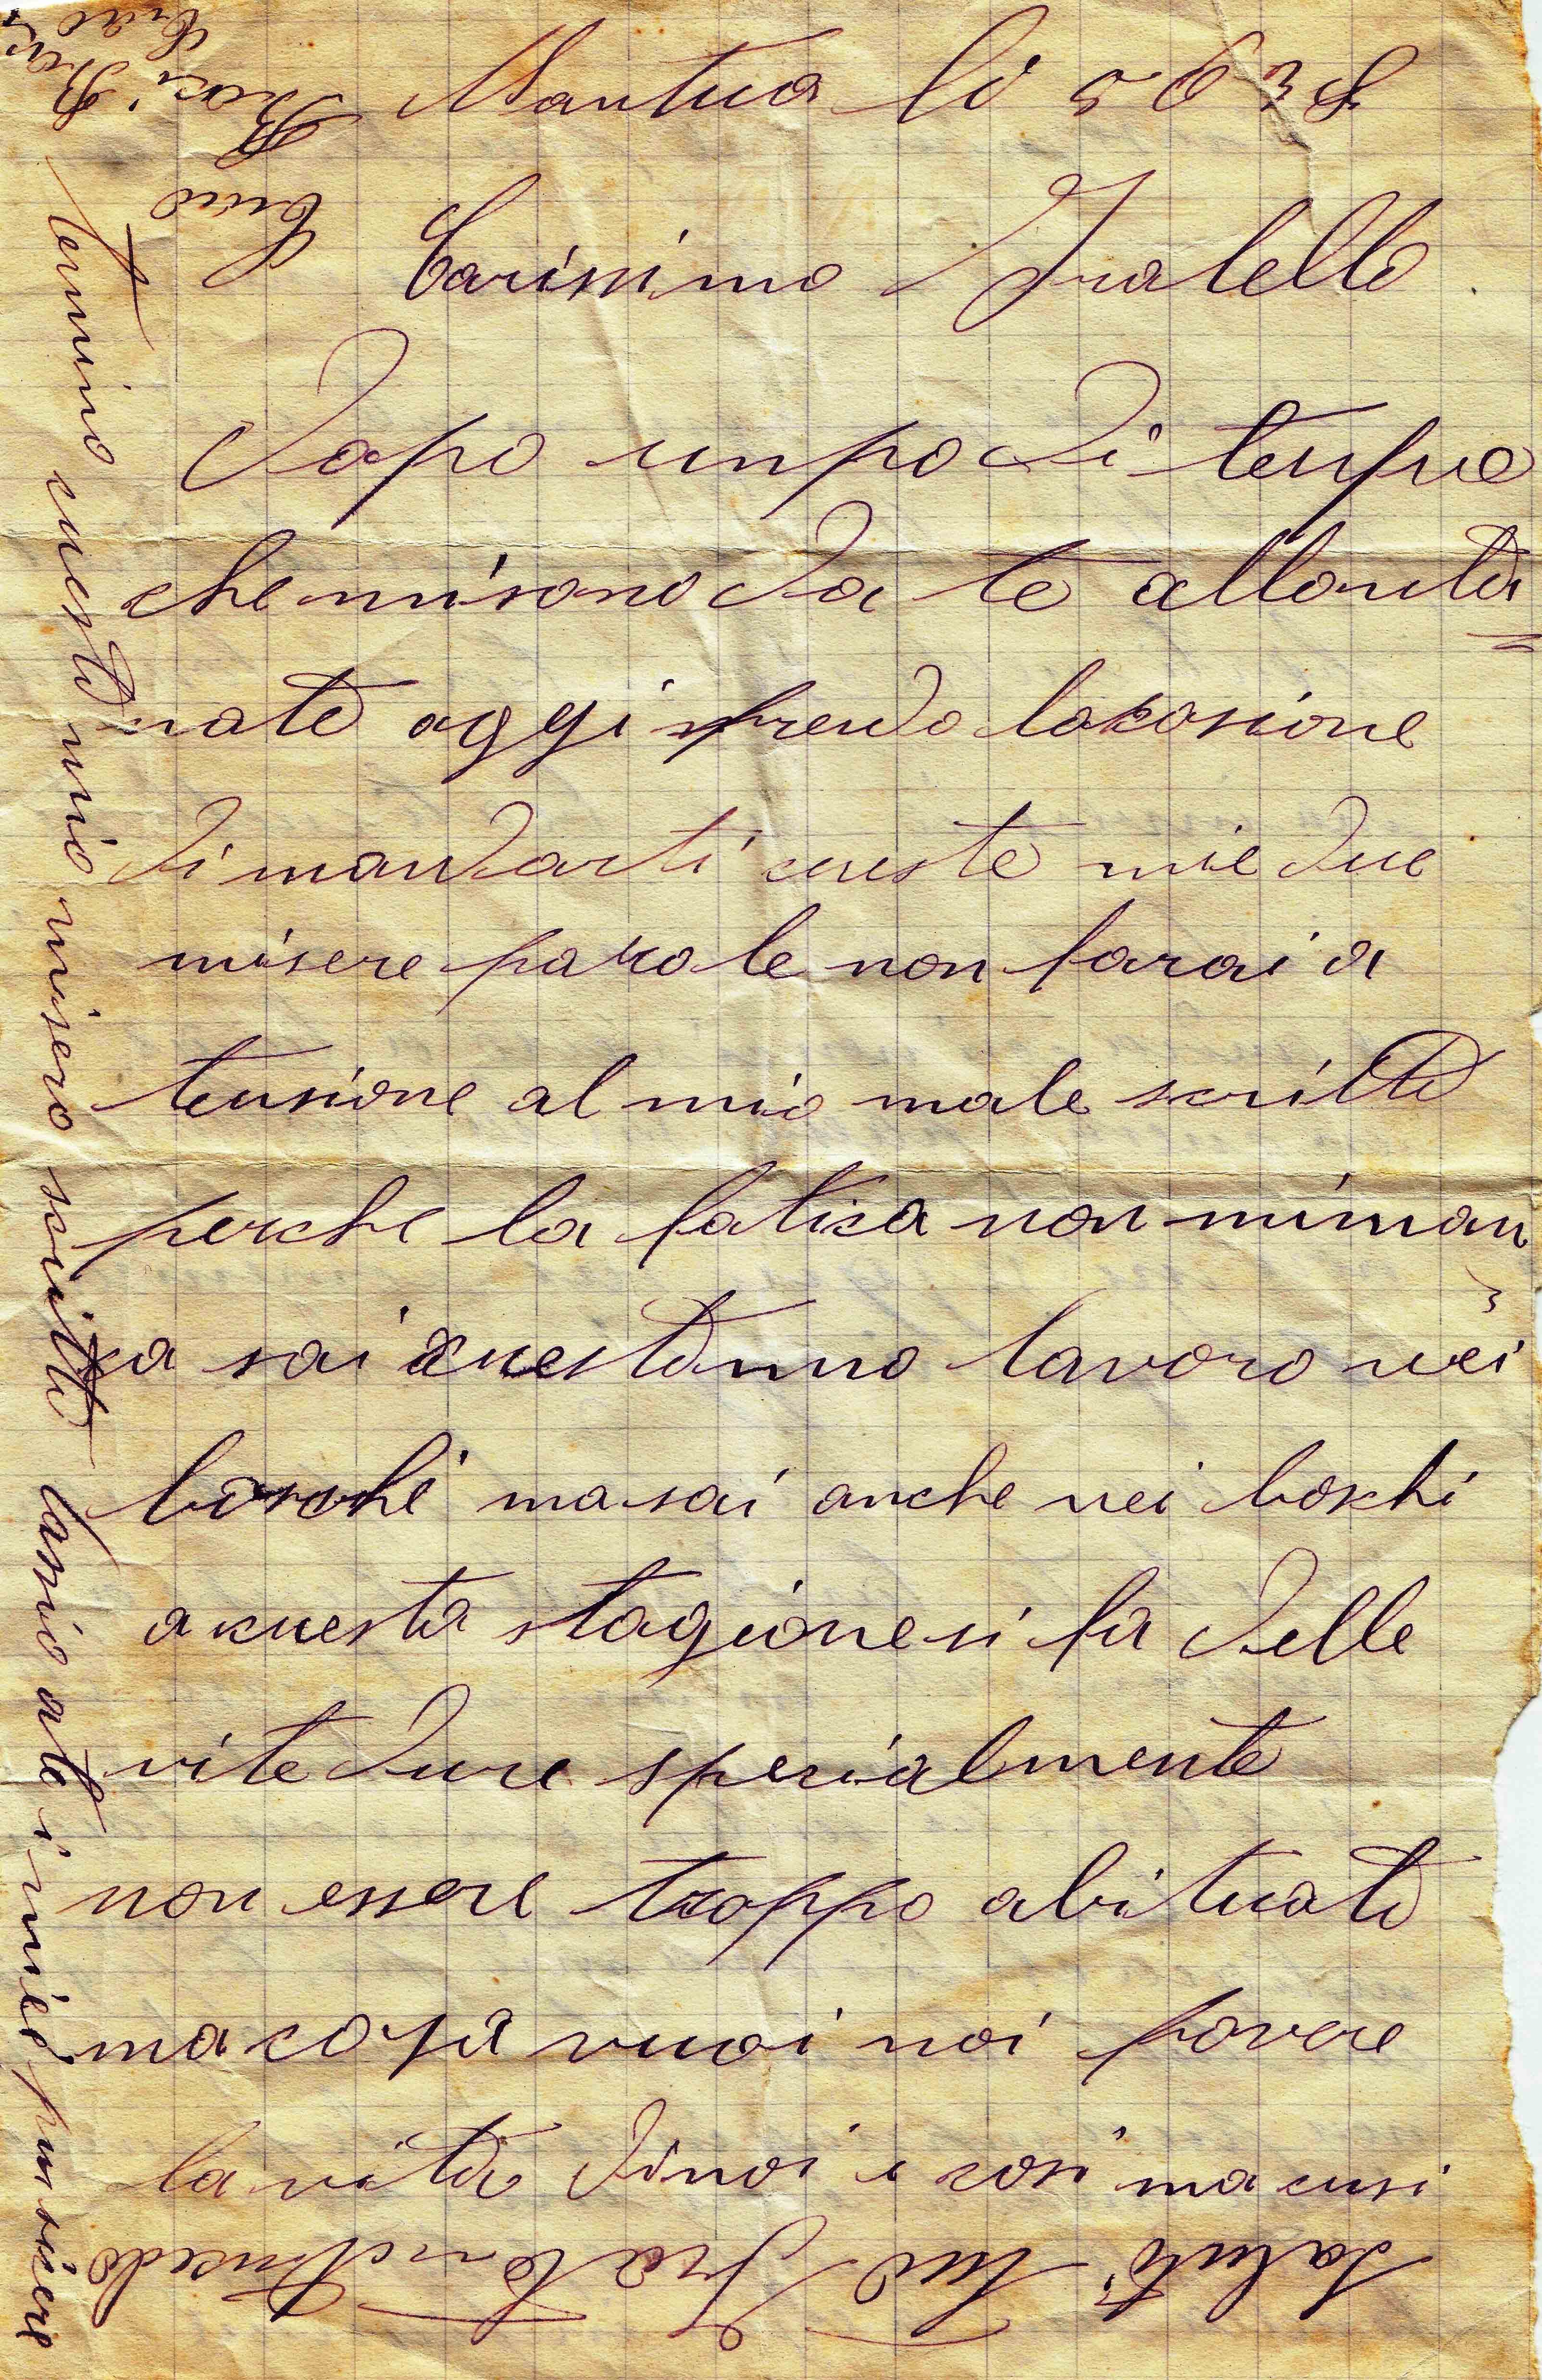 Mantua li 5 9 38
Carissimo Fratello
Dopo un po di tenpo
che mi sono da te allonta=
nato oggi prendo locosione
di mandarti cueste mie due
misere parole non farai a
tensione al mio male scritto
perche la fatica non mi man
ca sai cuestanno lavoro nei
boschi ma sai anche nei boschi
a cuesta stagione si fa delle
vite dure specialmente
non essere troppo abituato
ma cosa vuoi noi povere
la vita di noi e cosi ma cusi
Termino cuesto mio misero scritto lascio a te i miei pensiere
Saluti tuo Fratello
Ciao
Baci
Ciao
Baci